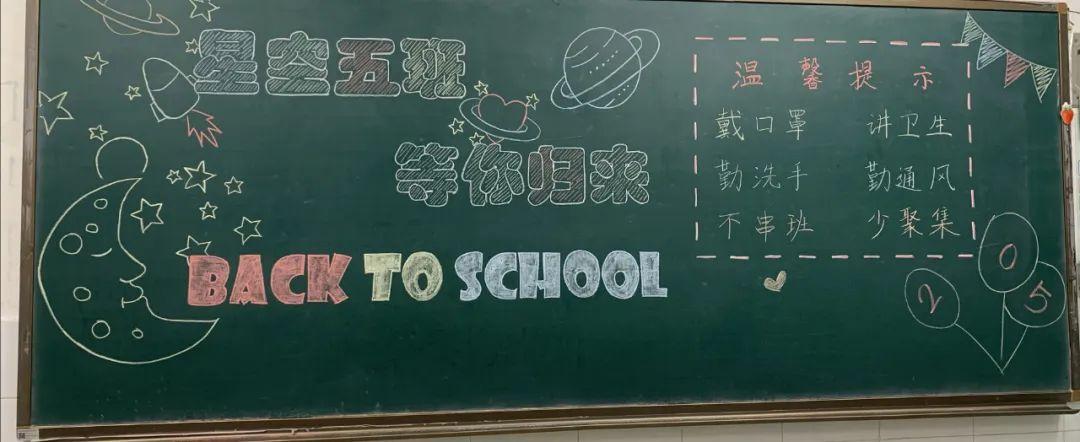 星空五班
等你归来
BACK TO SCHOOL
温馨提示
戴口罩 讲卫生
勤洗手 勤通风
不串班 少聚集
2 0 5